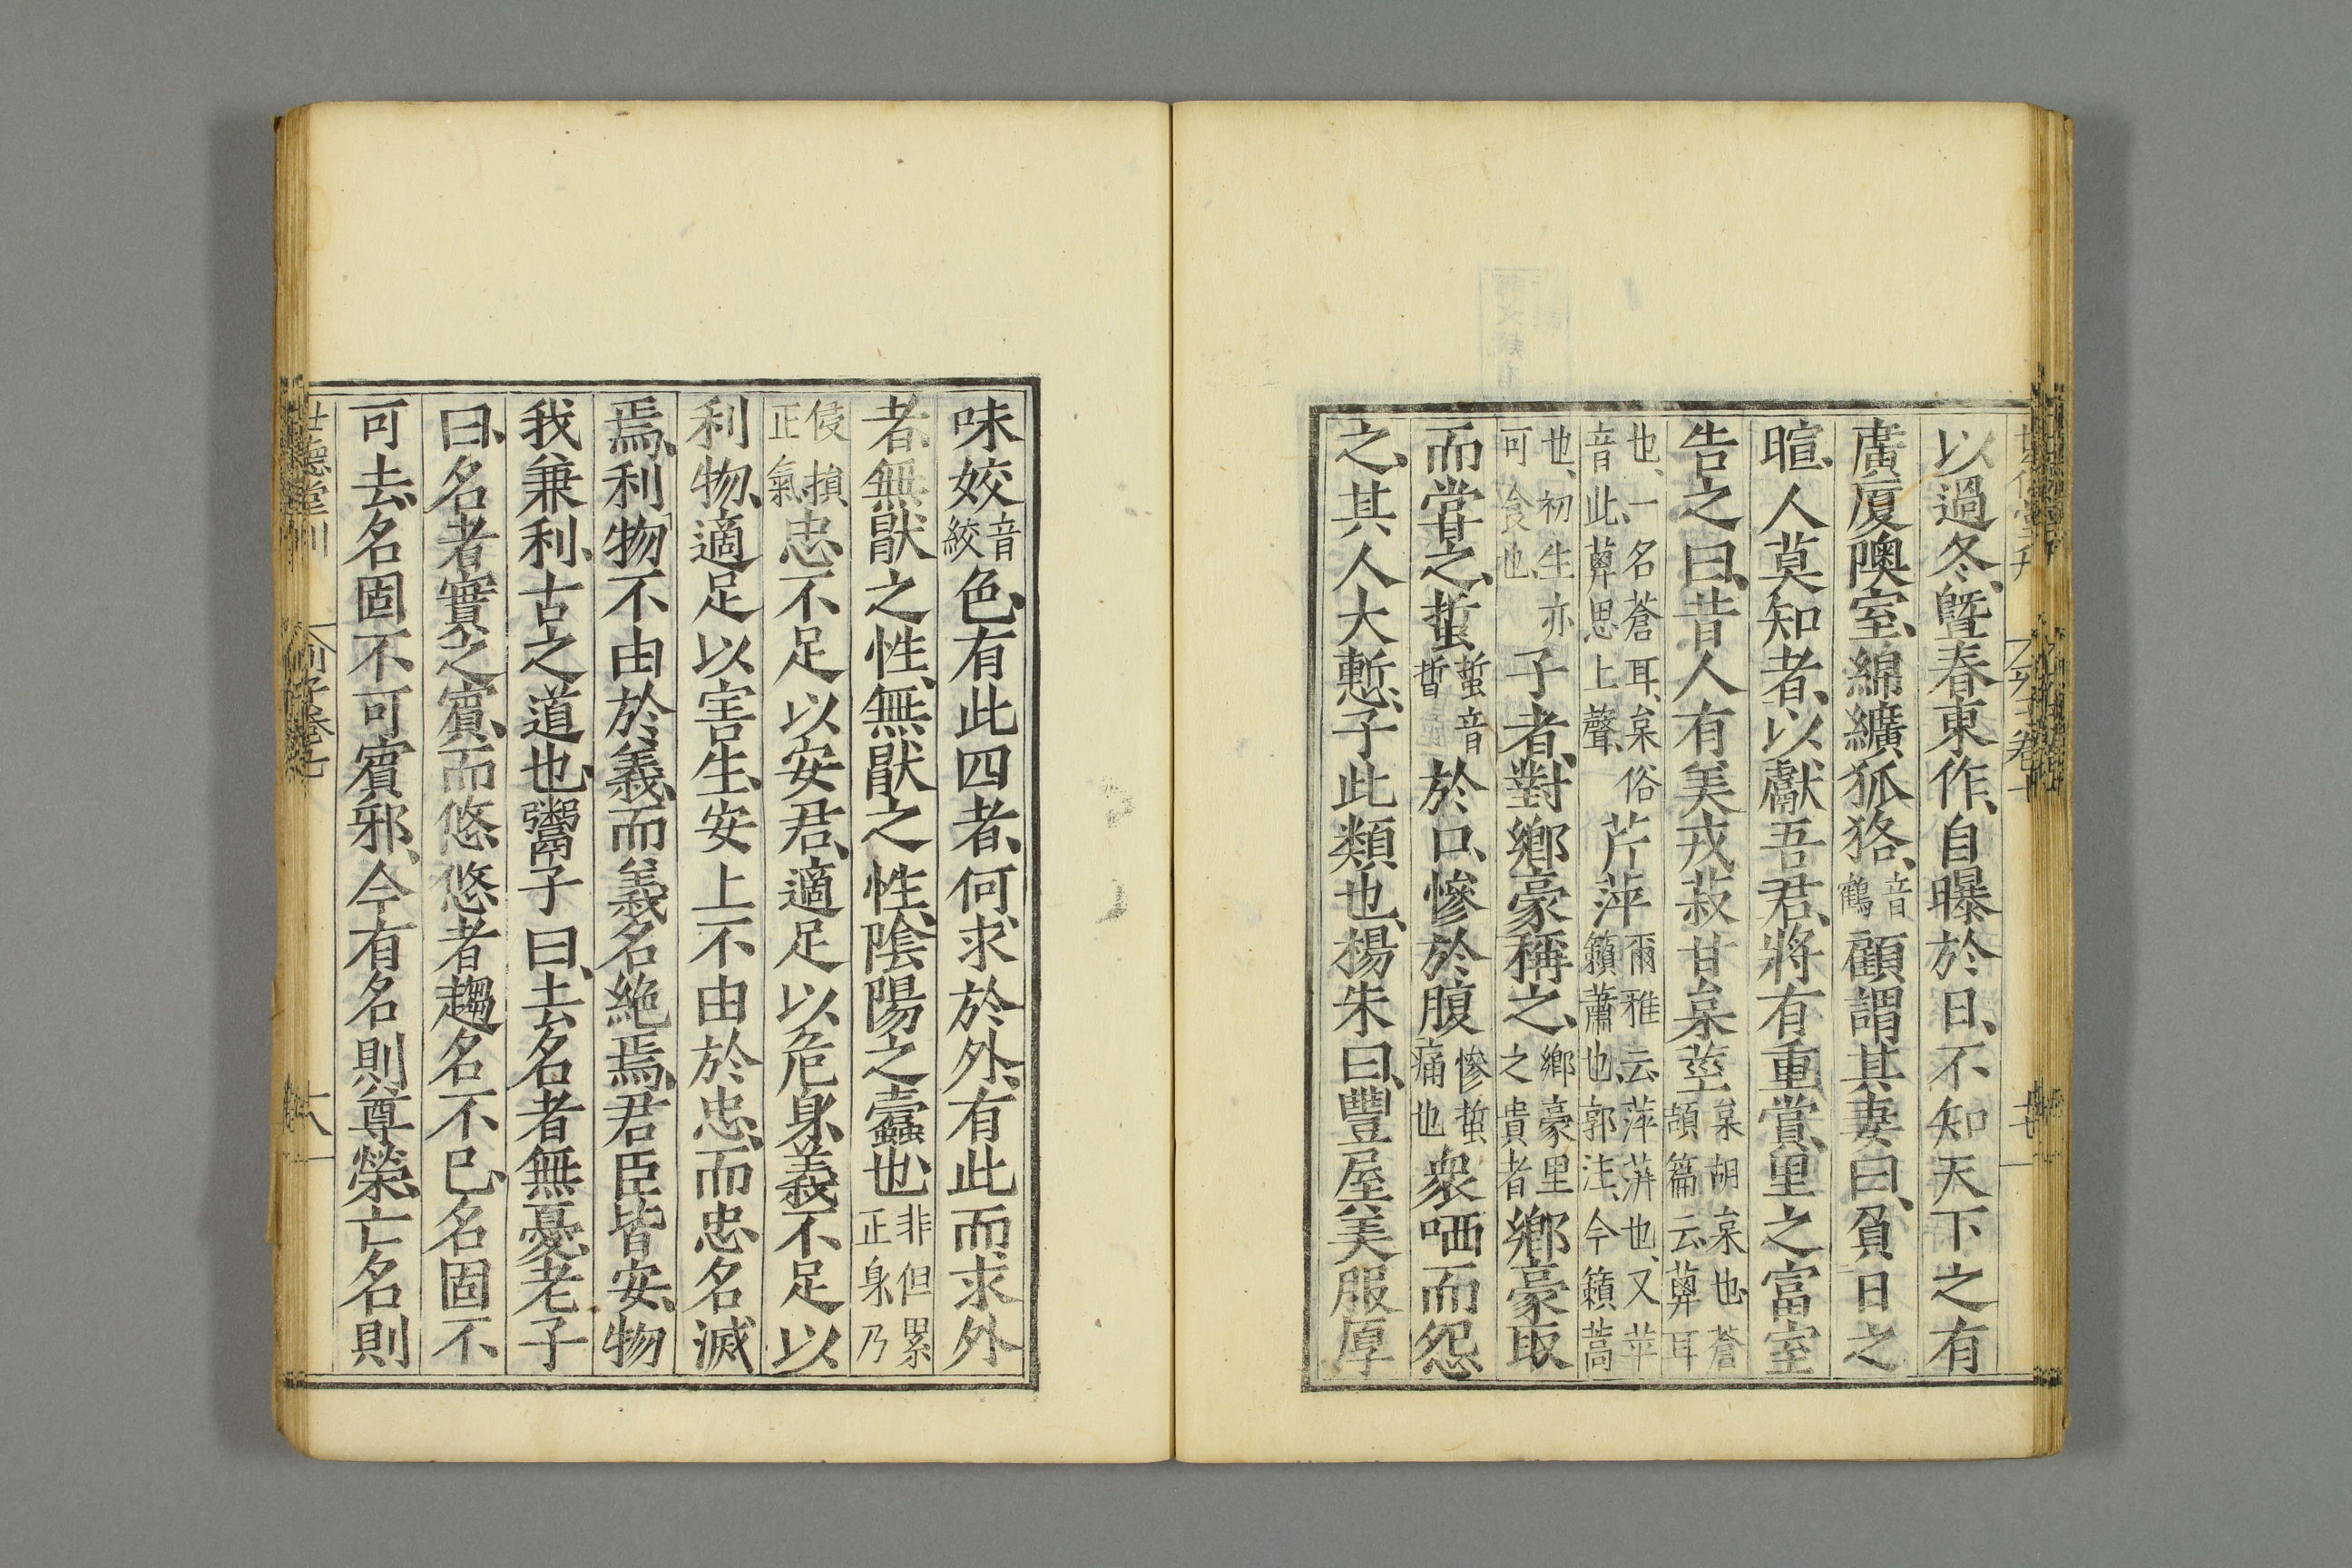 以過冬、暨春東作、自曝於日、不知天下之有
廣厦隩室、綿纊狐狢、音鶴顧謂其妻曰、負日之
暄、人莫知者、以獻吾君、將有重賞、里之富室
告之曰、昔人有美戎菽甘枲莖枲胡枲也、蒼頡篇云、萆耳
也、一名蒼耳、枲俗音此、萆思上聲、芹萍爾雅云、萍蓱也、又苹籟蕭也、郭注、今籟蒿
也、初生亦可食也、子者、對鄉豪稱之、鄉豪里之貴者鄉豪取
而嘗之、蜇蜇音晢於口、慘於腹慘蜇痛也衆哂而怨
之、其人大慙、子此類也、楊朱曰、豐屋美服厚
味姣音絞色、有此四者、何求於外、有此而求外
者、無猒之性、無猒之性、陰陽之蠹也、非但累正身乃
侵損正氣、忠、不足以安君、適足以危身、義不足以
利物、適足以害生、安上不由於忠、而忠名滅
焉、利物不由於義、而義名絶焉、君臣皆安、物
我兼利、古之道也、鬻子曰、去名者無憂、老子
曰、名者實之賓、而悠悠者趨名不已、名固不
可去、名固不可賓邪、今有名則尊榮、亡名則
世德堂刊 列子卷七 十八